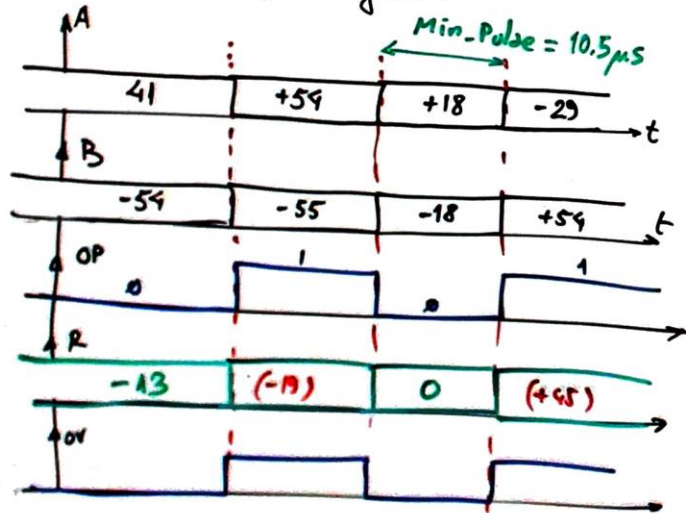 A
Min_Pulse = 10.5µs
41 +54 +18 -29
t
B
-54 -55 -18 +54
t
OP
0 1 0 1
R
-13 (-19) 0 (+45)
OV